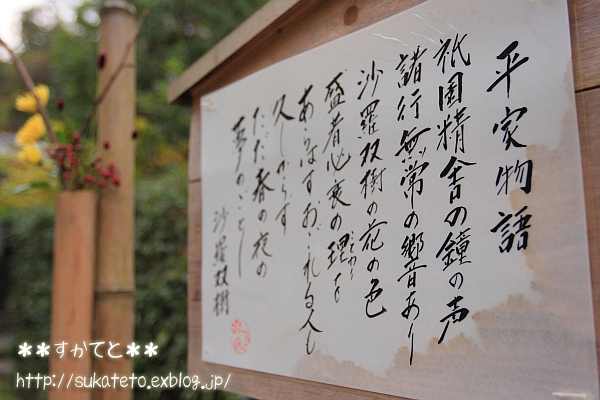 平家物語
祇園精舎の鐘の声
諸行無常の響あり
沙羅双樹の花の色
盛者必衰の理を
ことわり
あらはすおごれる人も
久しからず
ただ春の夜の
夢のごとし
沙羅双樹
**すかてと**
http://sukateto.exblog.jp/